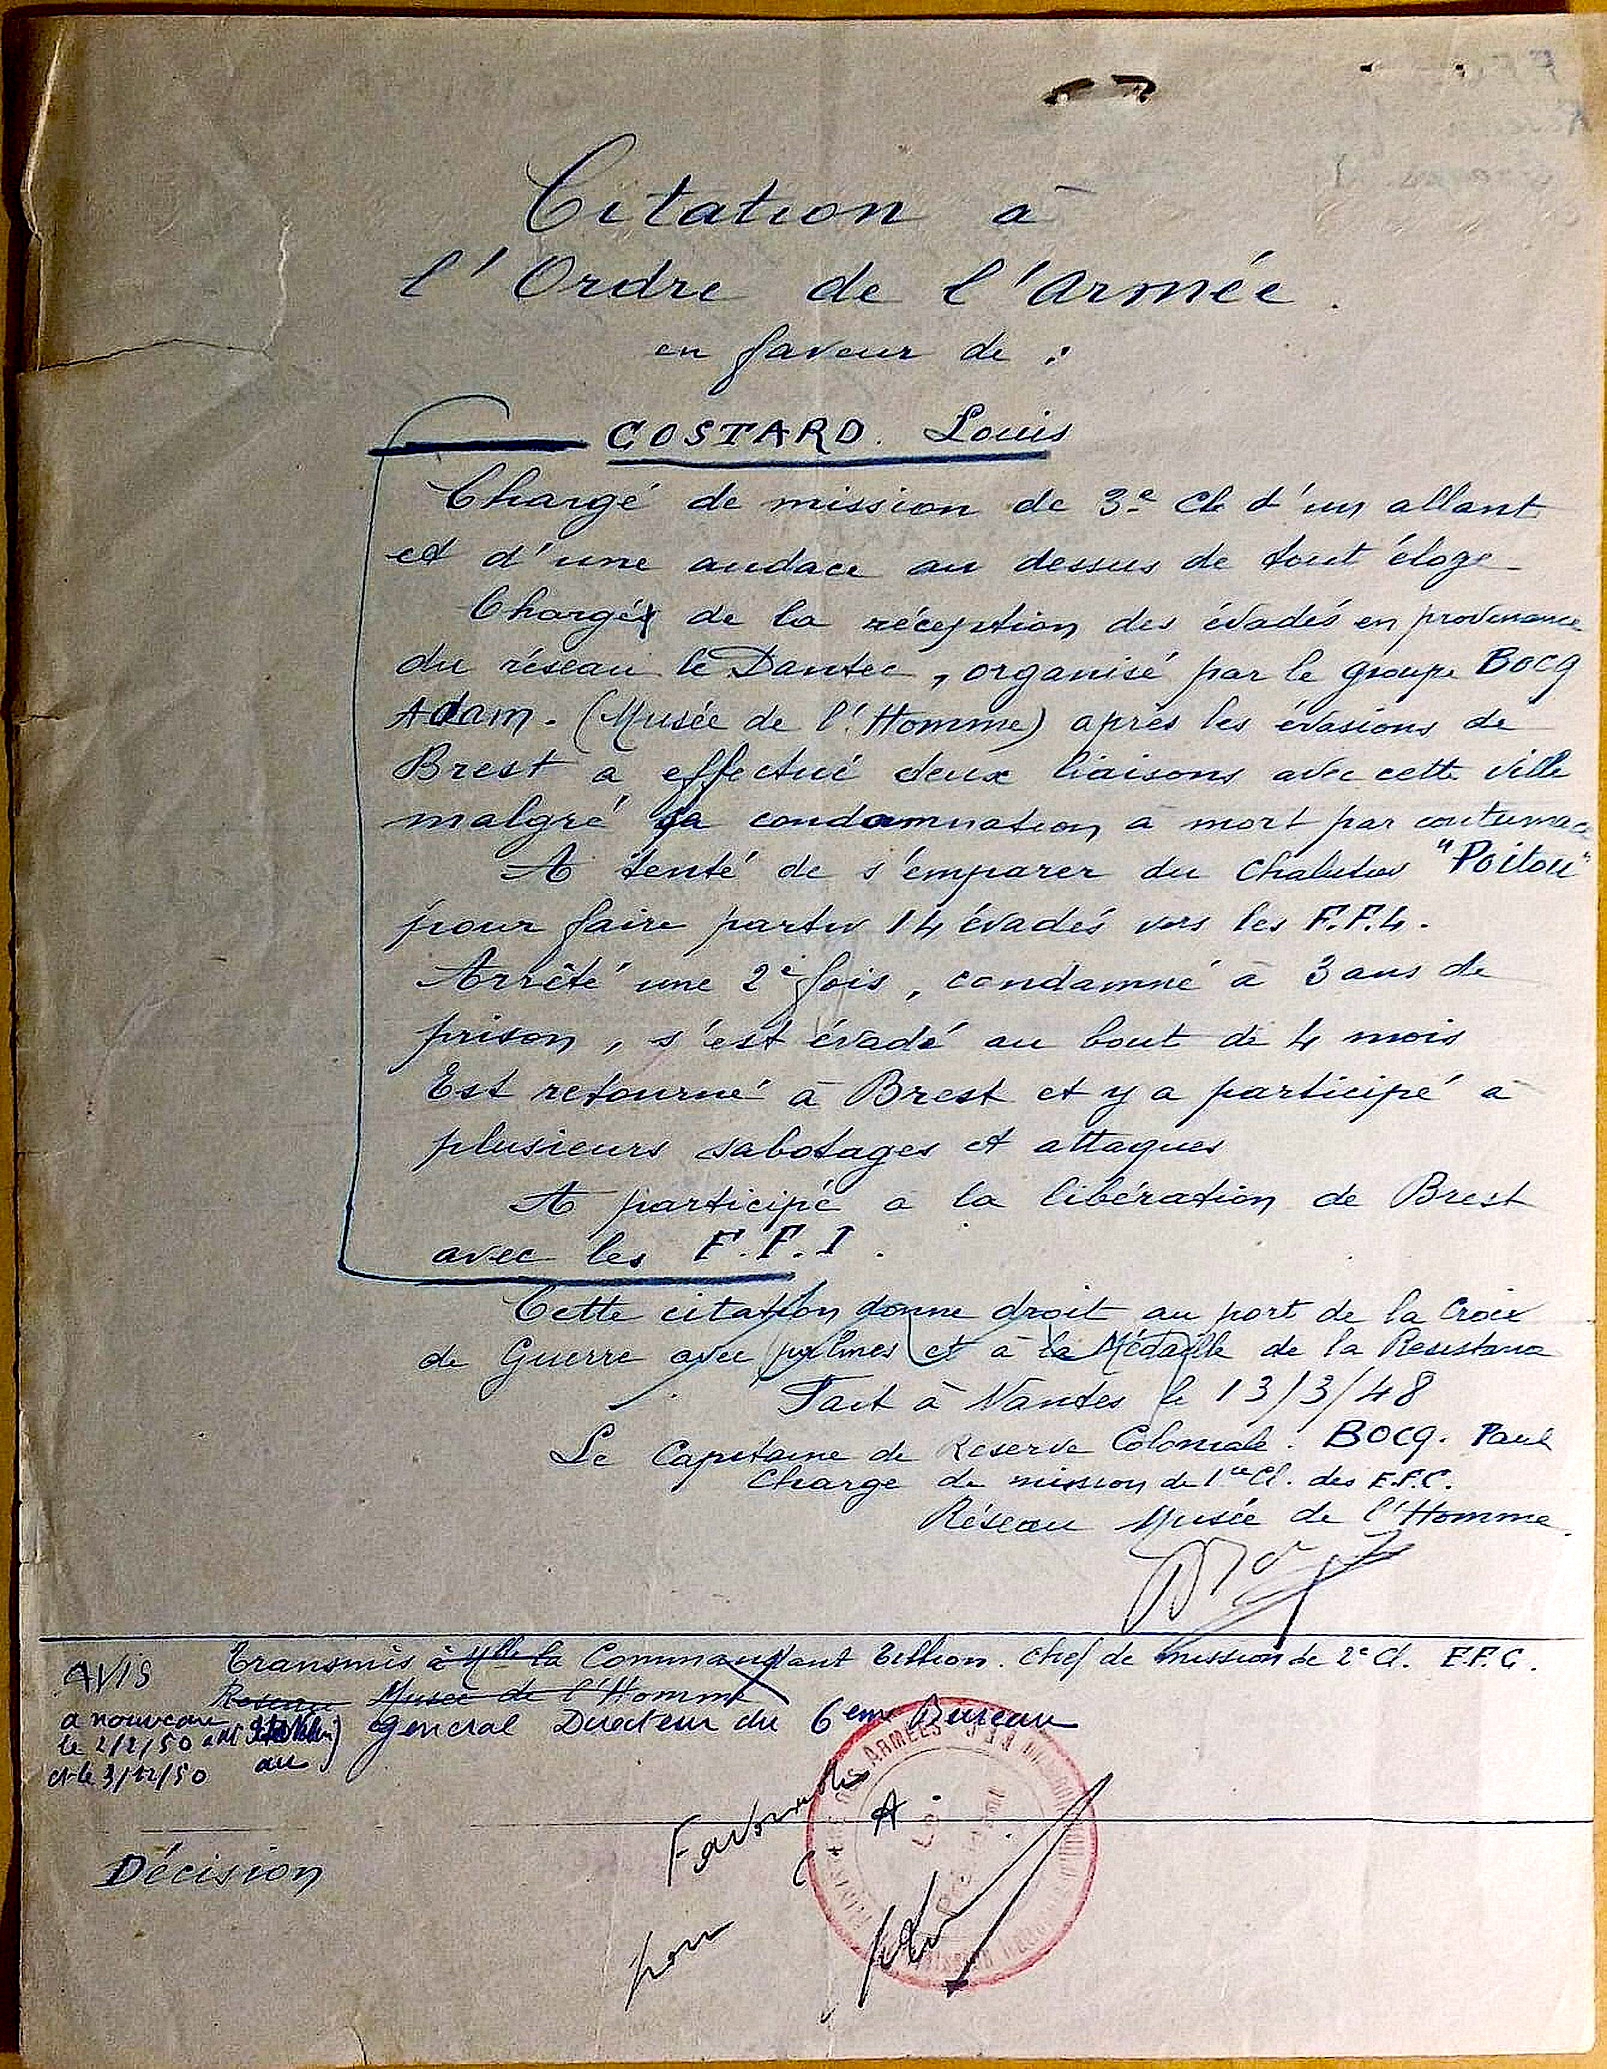 Citation à
l'Ordre de l'Armée.
en faveur de :
COSTARD. Louis
Chargé de mission de 3e Cl. d'un allant
et d'une audace au dessus de tout éloge
Chargé de la réception des évadés en provenance
du réseau le Dantec, organisé par le groupe BOCQ
Adam. (Musée de l'Homme) après les évasions de
Brest a effectué deux liaisons avec cette ville
malgré sa condamnation à mort par contumace
A tenté de s'emparer du chalutier "Poitou"
pour faire partir 14 évadés vers les F.F.L.
Arrêté une 2e fois, condamné à 3 ans de
prison, s'est évadé au bout de 4 mois
Est retourné à Brest et y a participé à
plusieurs sabotages et attaques
A participé à la libération de Brest
avec les F.F.I.
Cette citation donne droit au port de la Croix
de Guerre avec palmes et à la Médaille de la Resistance
Fait à Nantes le 13/3/48
Le Capitaine de Reserve Coloniale. BOCQ. Paul
Chargé de mission de 1ere Cl. des F.F.C.
Réseau Musée de l'Homme.
AVIS
Transmis à Mlle la Commandant Tillion. Chef de mission de 2e Cl. F.F.C.
Reseau Musée de l'Homme
a nouveau
le 2/2/50 au
et le 3/12/50
général Directeur du 6eme Bureau
ARMÉES
Favorable
A
pour
Décision